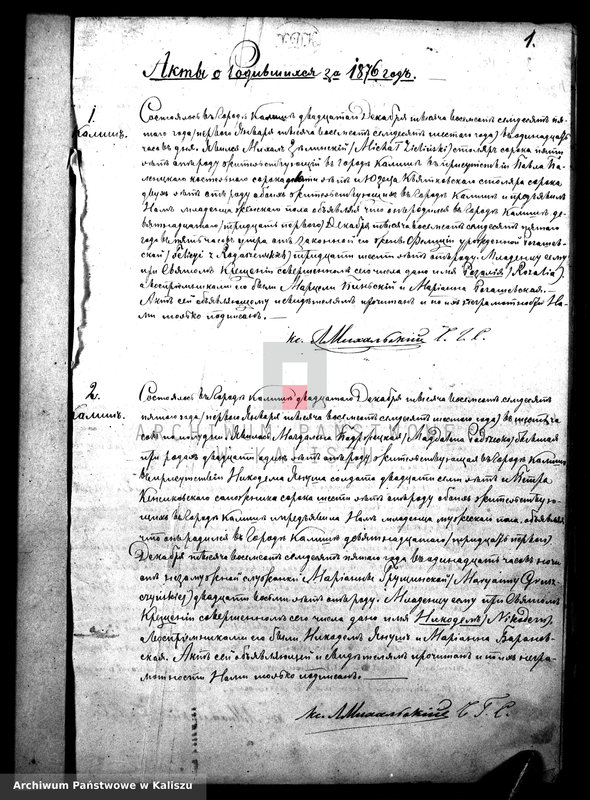 1.
Акты о Родившихся за 1876 годъ.
1.
Калишъ.
Состоялось въ городѣ Калишѣ двадцатаго Декабря тысяча восемьсотъ семьдесятъ пя-
таго года /перваго Января тысяча восемьсотъ семьдесятъ шестаго года/ въ одинадцать
часовъ дня. Явился Михаилъ /Michał Zieliński/ столяръ сорока пяти
лѣтъ отъ роду жительствующій въ городѣ Калишѣ въ присутствіи Павла
сорока лѣтъ и столяра сорока
двухъ лѣтъ отъ роду обоихъ жительствующихъ въ городѣ Калишѣ и предъявилъ
Намъ младенца женскаго пола объявляя что онъ родился въ городѣ Калишѣ де-
вятнадцатаго /тридцать перваго/ Декабря тысяча восемьсотъ семьдесятъ пятаго
года въ пять часовъ утра отъ законной его жены Фелиціи урожденной Рогашев-
ской / тридцати шести лѣтъ отъ роду. Младенцу сему
при Святомъ Крещеніи совершенномъ сего числа дано имя Розалія /Rozalia/
а воспріемниками его были и Маріанна Рогашевская.—
Актъ сей объявляющему и свидѣтелямъ прочитанъ и по ихъ неграмотности На-
ми только подписанъ.—
кс. Михальскій Ч. Г. С.
2.
Калишъ.
Состоялось въ городѣ Калишѣ двадцатаго Декабря тысяча восемьсотъ семьдесятъ
пятаго года /перваго Января тысяча восемьсотъ семьдесятъ шестаго года/ въ шесть ча-
совъ пополудни. Явилась Магдалена /Magdalena бывшая
при родахъ двадцати лѣтъ отъ роду жительствующая въ городѣ Калишѣ
въ присутствіи Никодема Януша солдата двадцати семи лѣтъ и Петра
сапожника сорока шести лѣтъ отъ роду обоихъ жительствую-
щихъ въ городѣ Калишѣ и предъявила Намъ младенца мужескаго пола объявляя
что онъ родился въ городѣ Калишѣ девятнадцатаго /тридцать перваго/
Декабря тысяча восемьсотъ семьдесятъ пятаго года въ одинадцать часовъ ночи
отъ незамужной служанки Маріанны Грущинской /Maryanny Grusz-
czyńskiej/ двадцати восьми лѣтъ отъ роду. Младенцу сему при Святомъ
Крещеніи совершенномъ сего числа дано имя Никодемъ /Nikodem/
а воспріемниками его были Никодемъ Янушъ и Маріанна Баранов-
ская. Актъ сей объявляющей и свидѣтелямъ прочитанъ и по ихъ негра-
мотности Нами только подписанъ.
кс. Михальскій Ч. Г. С.
ARCHIWUM PAŃSTWOWE
W KALISZU
Archiwum Państwowe w Kaliszu